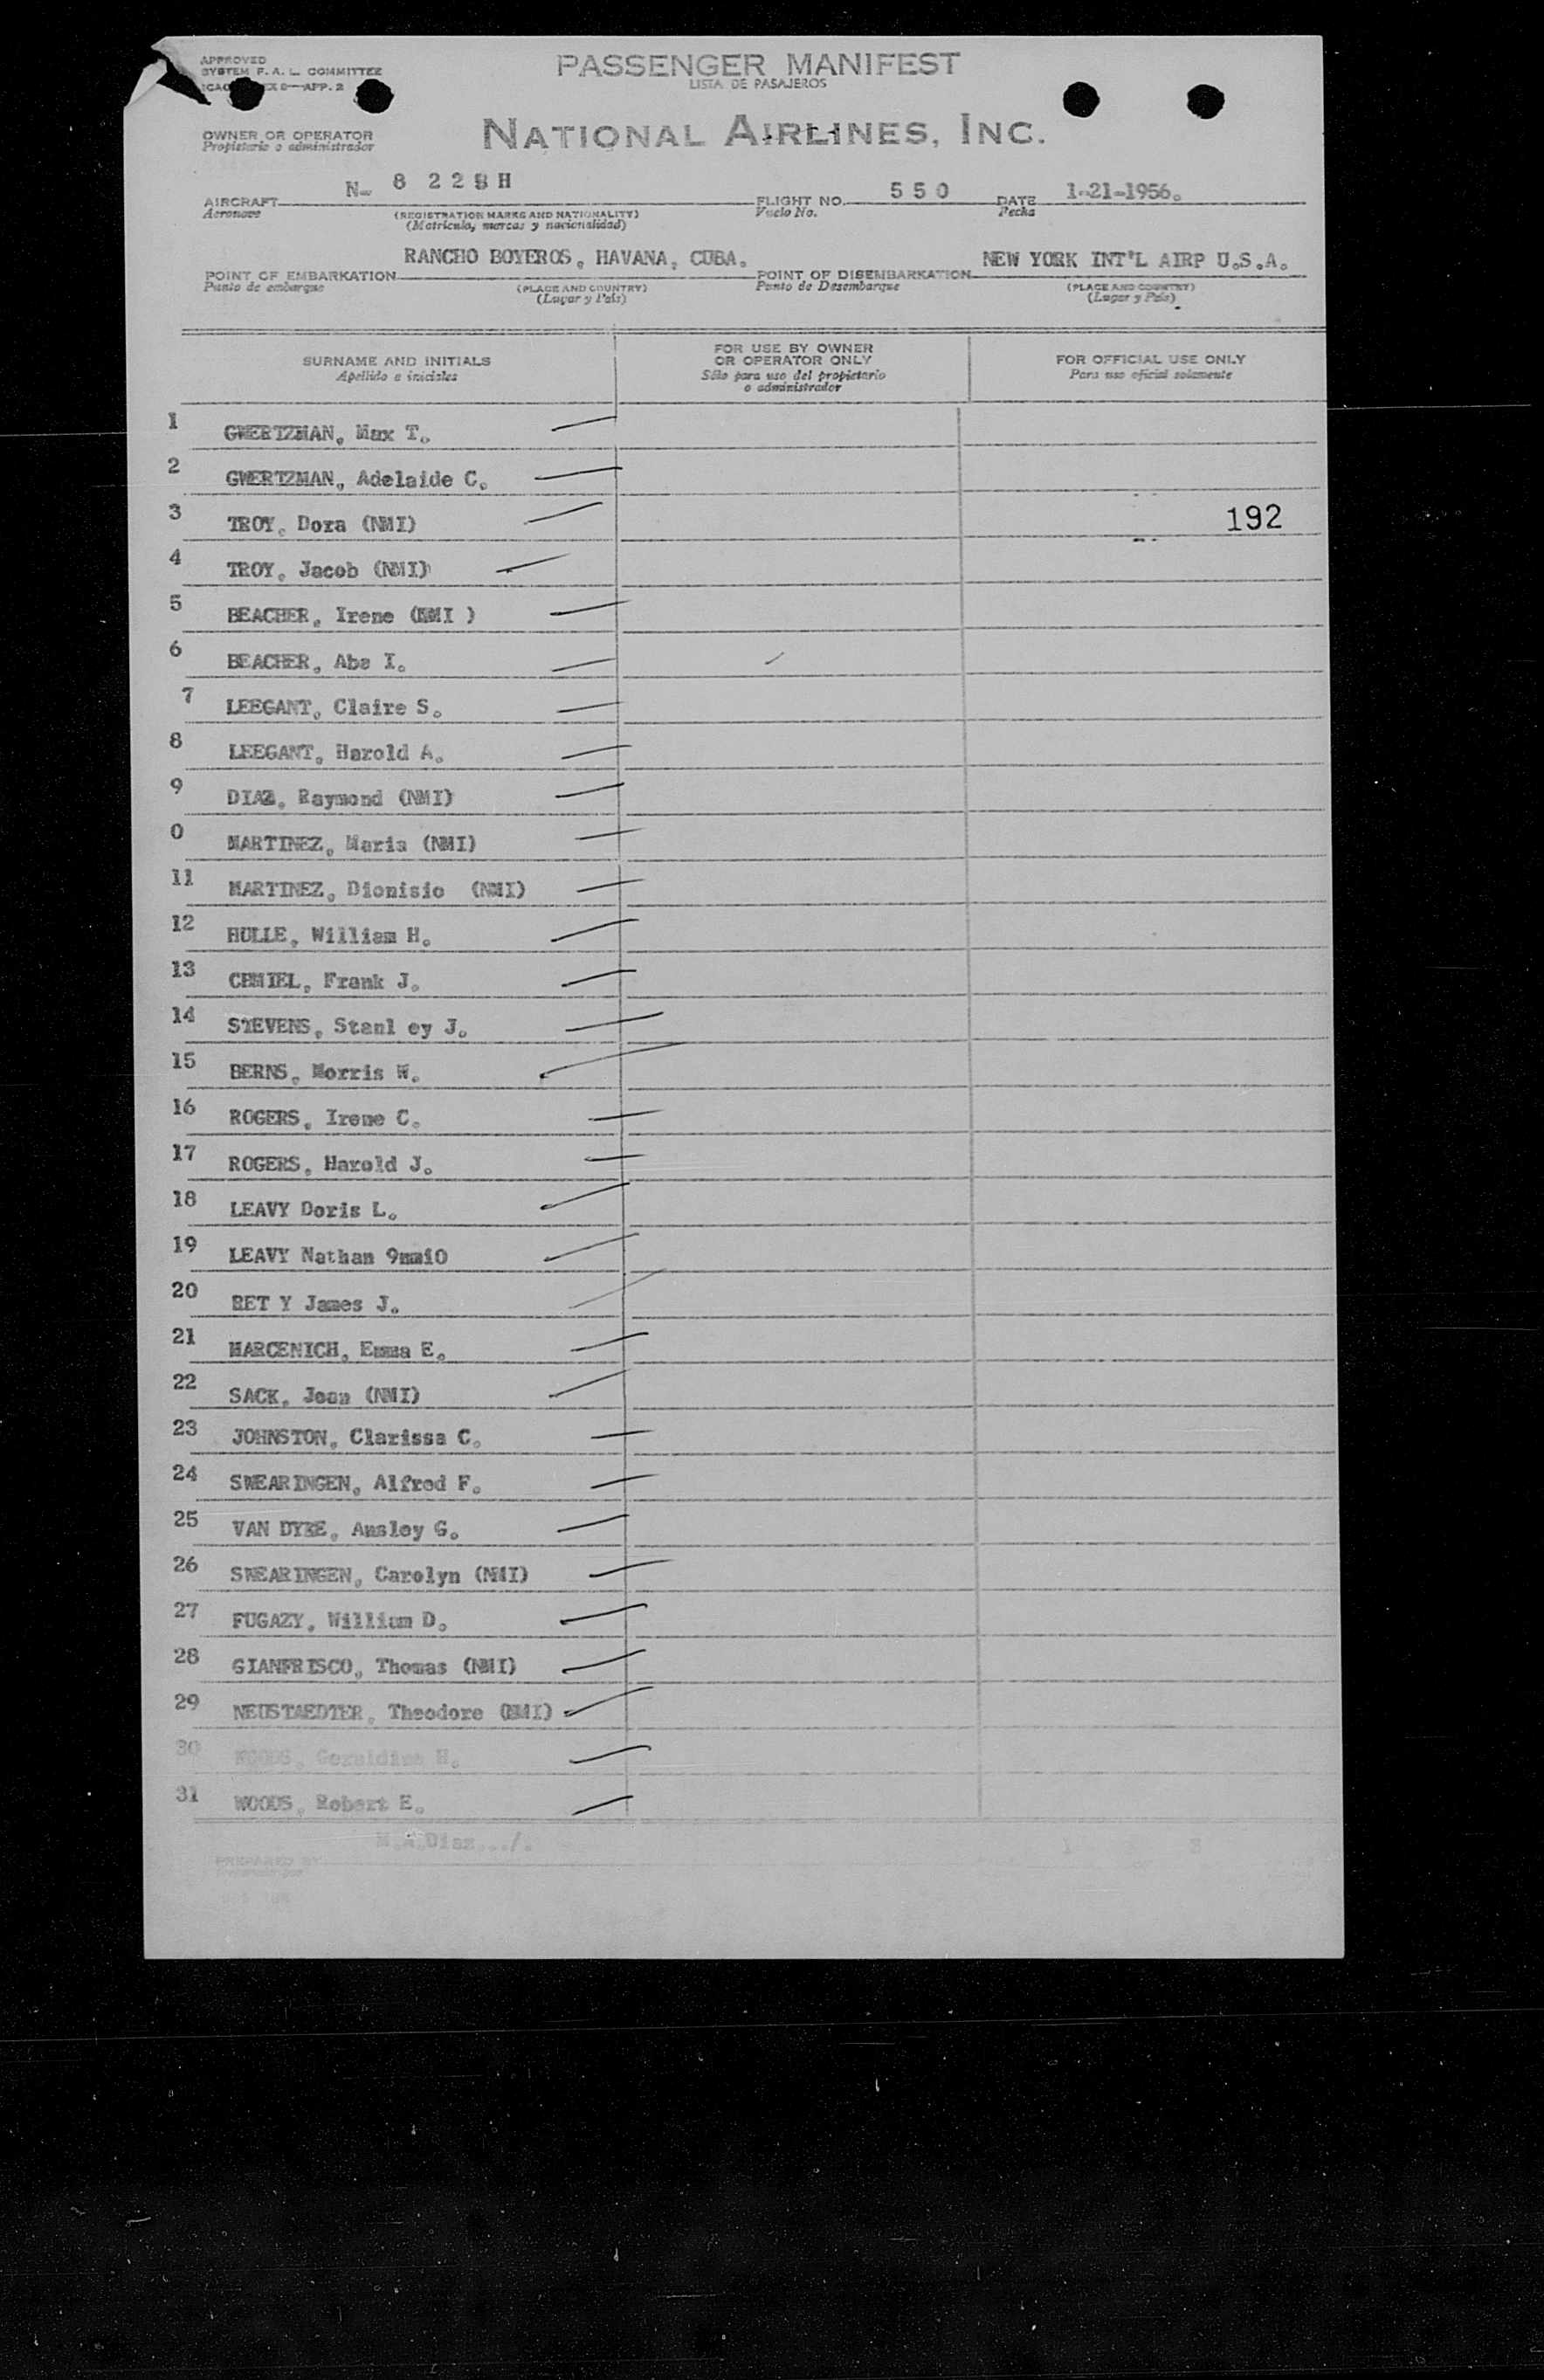 APPROVED
SYSTEM F. A. L. COMMITTEE
APP. 2
PASSENGER MANIFEST
LISTA DE PASAJEROS
NATIONAL AIRLINES, INC.
OWNER OR OPERATOR
Propietario o administrador
AIRCRAFT N- 8 228H FLIGHT NO. 550 DATE 1-21-1956.
Aeronave (REGISTRATION MARKS AND NATIONALITY) Vuelo No. Fecha
(Matricula, marcas y nacionalidad)
POINT OF EMBARKATION RANCHO BOYEROS, HAVANA, CUBA. POINT OF DISEMBARKATION NEW YORK INT'L AIRP U.S.A.
Punto de embarque (PLACE AND COUNTRY) Punto de Desembarque (PLACE AND COUNTRY)
(Lugar y País) (Lugar y País)
SURNAME AND INITIALS
Apellido e iniciales
FOR USE BY OWNER
OR OPERATOR ONLY
Sólo para uso del propietario
o administrador
FOR OFFICIAL USE ONLY
Para uso oficial solamente
1 GWERTZMAN, Max T.
2 GWERTZMAN, Adelaide C.
3 TROY, Dora (NMI) 192
4 TROY, Jacob (NMI)
5 BEACHER, Irene (NMI )
6 BEACHER, Abe I.
7 LEEGANT, Claire S.
8 LEEGANT, Harold A.
9 DIAZ, Raymond (NMI)
0 MARTINEZ, Maria (NMI)
11 MARTINEZ, Dionisio (NMI)
12 HULLE, William H.
13 CHMIEL, Frank J.
14 STEVENS, Stanl ey J.
15 BERNS, Morris W.
16 ROGERS, Irene C.
17 ROGERS, Harold J.
18 LEAVY Doris L.
19 LEAVY Nathan 9nmi0
20 RET Y James J.
21 MARCENICH, Emma E.
22 SACK, Jean (NMI)
23 JOHNSTON, Clarissa C.
24 SWEARINGEN, Alfred F.
25 VAN DYKE, Ansley G.
26 SWEARINGEN, Carolyn (NMI)
27 FUGAZY, William D.
28 GIANFRISCO, Thomas (NMI)
29 NEUSTAEDTER, Theodore (NMI)
30 WOODS, Geraldine H.
31 WOODS, Robert E.
M.A.Diaz../.
PREPARED BY
1 3